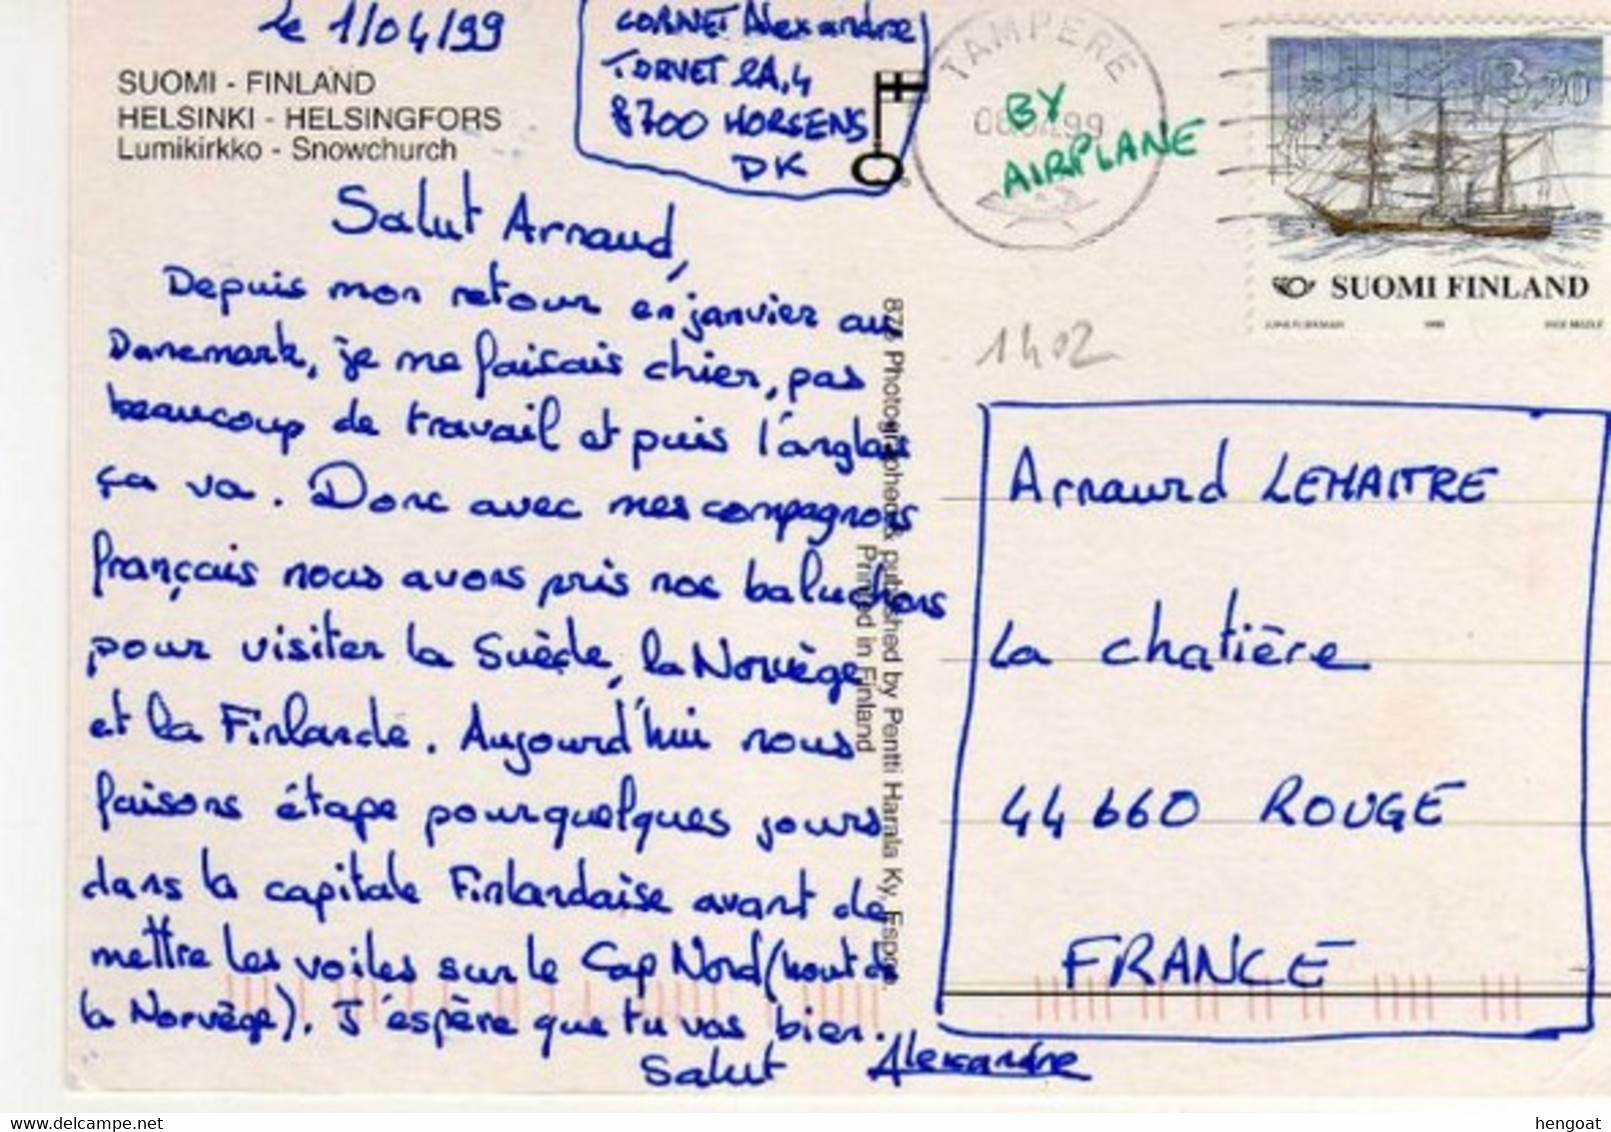 le 1/04/99
SUOMI - FINLAND
HELSINKI - HELSINGFORS
Lumikirkko - Snowchurch
CORNET Alexandre
TORVET 2A,4
8700 HORSENS
DK
TAMPERE
99
BY
AIRPLANE
3,20
SUOMI FINLAND
1402
Salut Arnaud,
Depuis mon retour en janvier au
Danemark, je me faisais chier, pas
beaucoup de travail et puis l'anglais
ça va. Donc avec mes compagnons
français nous avons pris nos baluchons
pour visiter la Suède, la Norvège
et la Finlande. Aujourd'hui nous
faisons étape pour quelques jours
dans la capitale Finlandaise avant de
mettre les voiles sur le Cap Nord (haut de
la Norvège). J'espère que tu vas bien.
Salut Alexandre
Photographed & published by Pentti Harala Ky, Espoo.
Printed in Finland
Arnaud LEMAITRE
La chatière
44660 ROUGE
FRANCE
hengoat